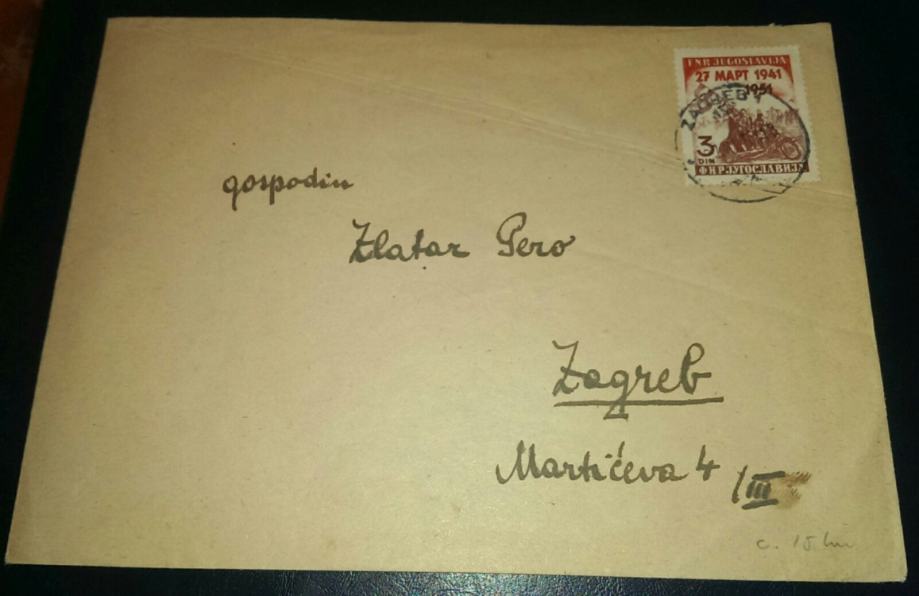 FNR JUGOSLAVIJA
27 МАРТ 1941
1951
ZAGREB 1
3
DIN
ФНР ЈУГОСЛАВИЈА
gospodin
Zlatar Pero
Zagreb
Martićeva 4 /III
c. 15